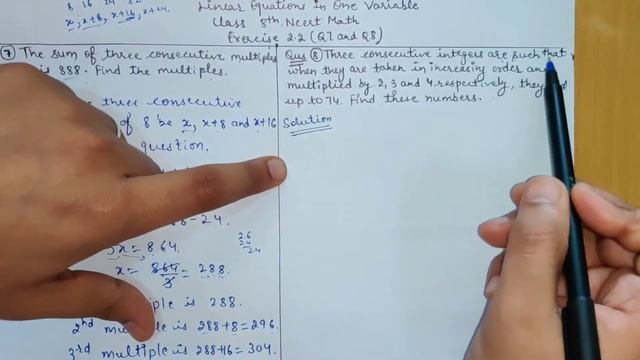 8 16 24 32
x, x+8, x+16, x+24
Linear Equations in One Variable
Class 8th Ncert Math
Exercise 2.2 (Q7 and Q8)
⑦ The sum of three consecutive multiples
is 888. Find the multiples.
of 8 be x, x+8 and x+16
question.
- 24.
3x = 864.
x = 864/3 = 288.
multiple is 288.
2nd multiple is 288+8 = 296.
3rd multiple is 288+16 = 304.
26
24
24
Qus ⑧ Three consecutive integers are such that
when they are taken in increasing order and
multiplied by 2, 3 and 4 respectively, they
up to 74. Find these numbers.
Solution